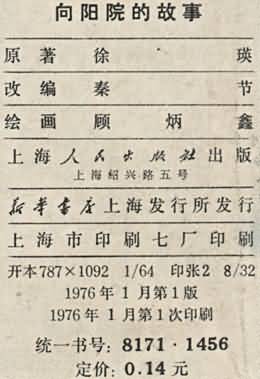 向阳院的故事
原著 徐瑛
改编 秦节
绘画 顾炳鑫
上海人民出版社出版
上海绍兴路五号
新华书店上海发行所发行
上海市印刷七厂印刷
开本787×1092 1/64 印张2 8/32
1976年1月第1版
1976年1月第1次印刷
统一书号：8171·1456
定价：0.14元